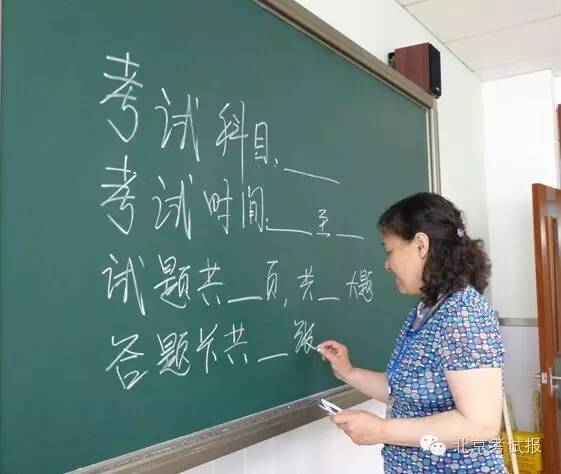 考试科目:___
考试时间:___至__
试题共__页,共__大题
答题卡共__张
北京考试报